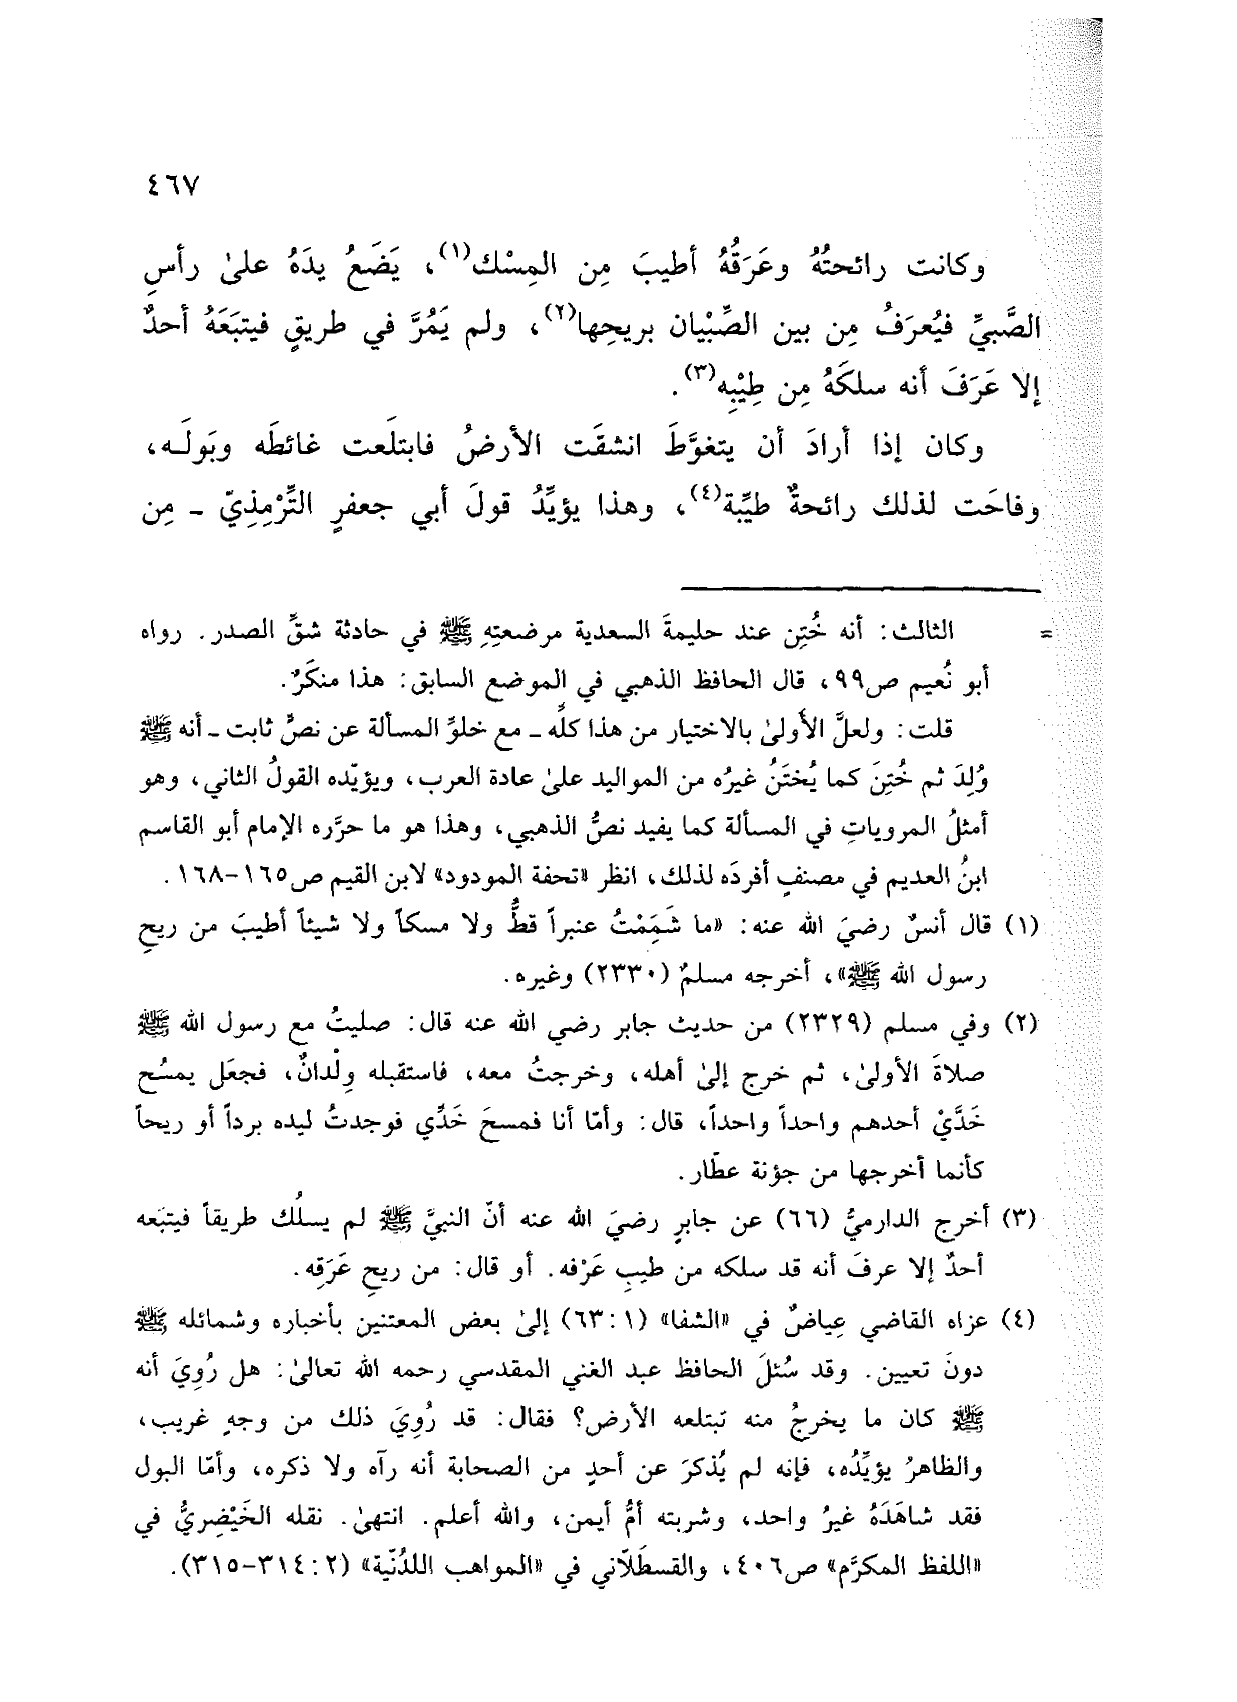 ٤٦٧
وكانت رائحتُهُ وعَرَقُهُ أطيبَ مِن المِسْك(١)، يَضَعُ يدَهُ علىٰ رأسِ
الصَّبيِّ فيُعرَفُ مِن بين الصِّبْيان بريحِها(٢)، ولم يَمُرَّ في طريقٍ فيتبَعَهُ أحدٌ
إلا عَرَفَ أنه سلكَهُ مِن طِيْبِه(٣).
وكان إذا أرادَ أن يتغوَّطَ انشقَت الأرضُ فابتلَعت غائطَه وبَولَـه،
وفاحَت لذلك رائحةٌ طيِّبة(٤)، وهذا يؤيِّدُ قولَ أبي جعفرٍ التِّرْمِذِيّ ـ مِن
= الثالث: أنه خُتِن عند حليمةَ السعدية مرضعتِهِ ﷺ في حادثة شقِّ الصدر. رواه
أبو نُعيم ص٩٩، قال الحافظ الذهبي في الموضع السابق: هذا منكَرٌ.
قلت: ولعلَّ الأَولىٰ بالاختيار من هذا كلِّه ـ مع خلوِّ المسألة عن نصٍّ ثابت ـ أنه ﷺ
وُلِدَ ثم خُتِنَ كما يُختَنُ غيرُه من المواليد علىٰ عادة العرب، ويؤيّده القولُ الثاني، وهو
أمثلُ المروياتِ في المسألة كما يفيد نصُّ الذهبي، وهذا هو ما حرَّره الإمام أبو القاسم
ابنُ العديم في مصنفٍ أفردَه لذلك، انظر «تحفة المودود» لابن القيم ص١٦٥-١٦٨.
(١) قال أنسٌ رضيَ الله عنه: «ما شَمَِمْتُ عنبراً قطُّ ولا مسكاً ولا شيئاً أطيبَ من ريحِ
رسول الله ﷺ»، أخرجه مسلمٌ (٢٣٣٠) وغيره.
(٢) وفي مسلم (٢٣٢٩) من حديث جابر رضي الله عنه قال: صليتُ مع رسول الله ﷺ
صلاةَ الأولىٰ، ثم خرج إلىٰ أهله، وخرجتُ معه، فاستقبله وِلْدانٌ، فجعَل يمسَح
خَدَّيْ أحدهم واحداً واحداً، قال: وأمّا أنا فمسحَ خَدِّي فوجدتُ ليده برداً أو ريحاً
كأنما أخرجها من جؤنة عطّار.
(٣) أخرج الدارميُّ (٦٦) عن جابرٍ رضيَ الله عنه أنّ النبيَّ ﷺ لم يسلُك طريقاً فيتبَعه
أحدٌ إلا عرفَ أنه قد سلكه من طيبِ عَرْفه. أو قال: من ريحِ عَرَقِه.
(٤) عزاه القاضي عِياضٌ في «الشفا» (١ :٦٣) إلىٰ بعض المعتنين بأخباره وشمائله ﷺ
دونَ تعيين. وقد سُئلَ الحافظ عبد الغني المقدسي رحمه الله تعالىٰ: هل رُوِيَ أنه
ﷺ كان ما يخرجُ منه تبتلعه الأرض؟ فقال: قد رُوِيَ ذلك من وجهٍ غريب،
والظاهرُ يؤيِّدُه، فإنه لم يُذكرَ عن أحدٍ من الصحابة أنه رآه ولا ذكره، وأمّا البول
فقد شاهَدَهُ غيرُ واحد، وشربته أمُّ أيمن، والله أعلم. انتهىٰ. نقله الخَيْضِريُّ في
«اللفظ المكرَّم» ص٤٠٦، والقسطَلّاني في «المواهب اللدُنّية» (٢ :٣١٤-٣١٥).